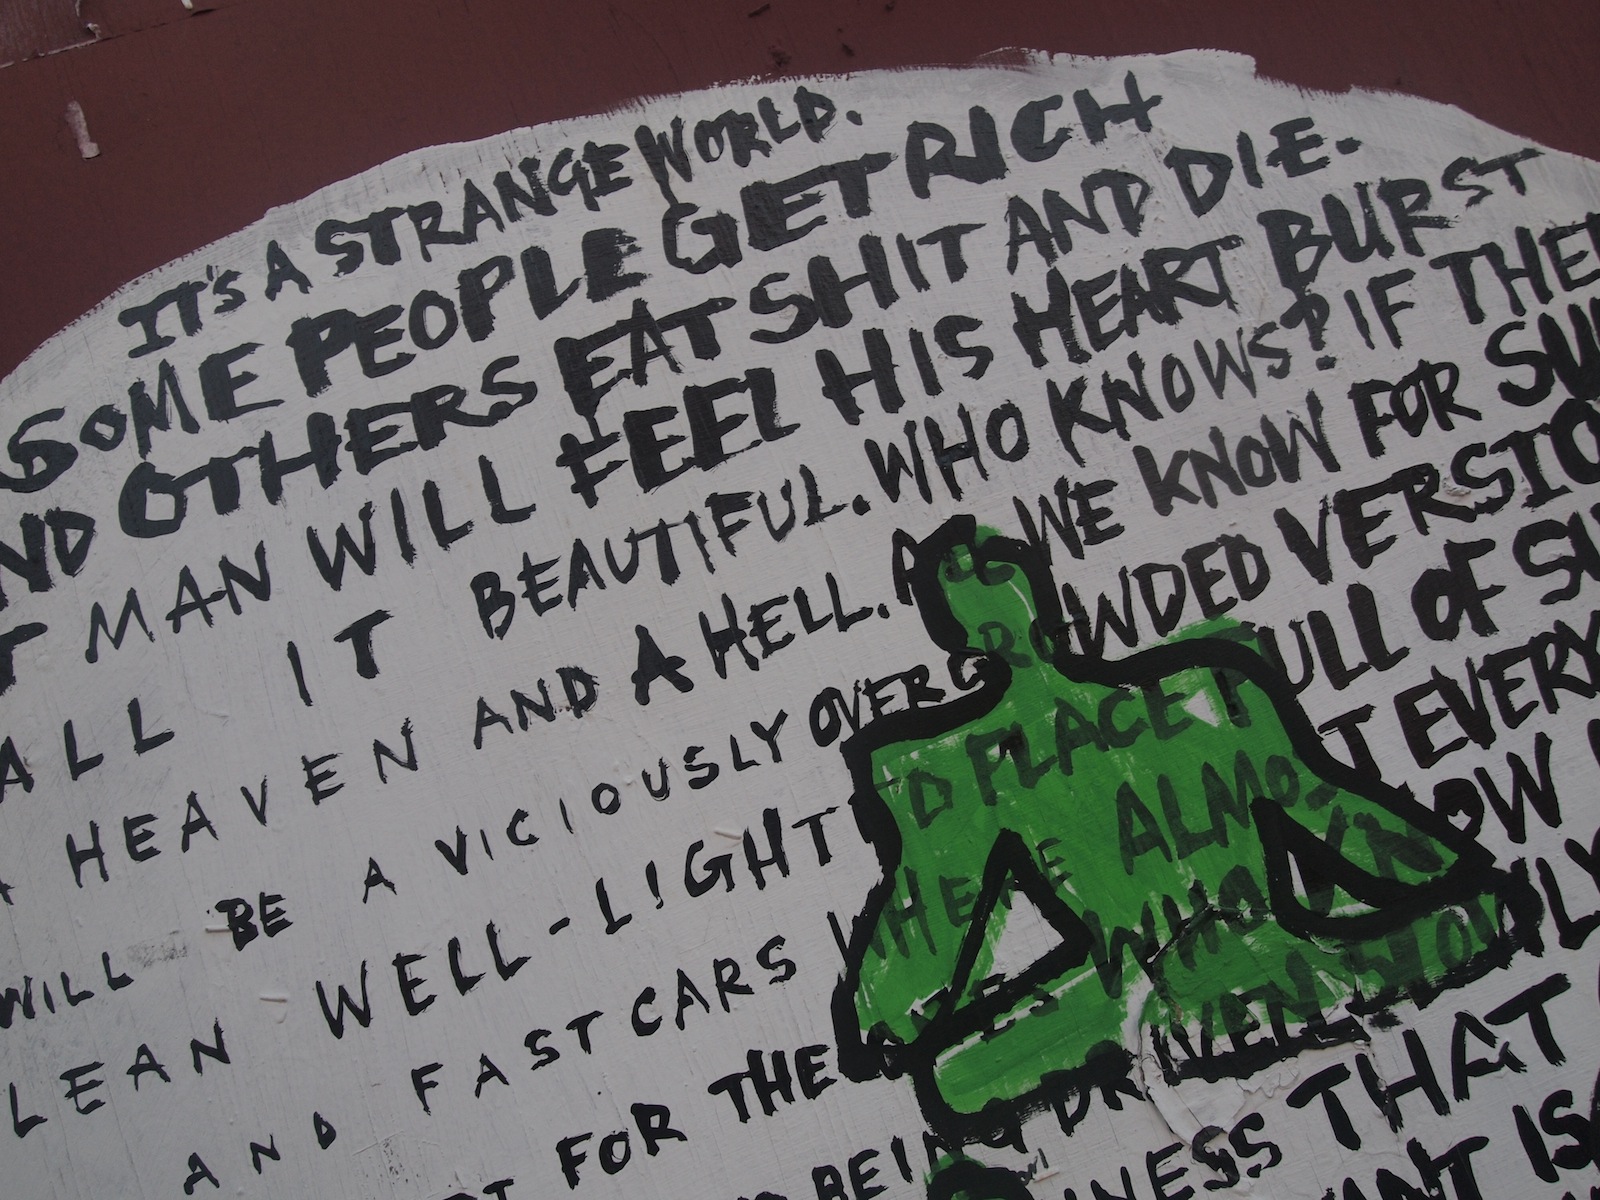 IT'S A STRANGE WORLD.
SOME PEOPLE GET RICH
ND OTHERS EAT SHIT AND DIE.
T MAN WILL FEEL HIS HEART BURST
ALL IT BEAUTIFUL. WHO KNOWS? IF THE
HEAVEN AND A HELL. ALL WE KNOW FOR SU
WILL BE A VICIOUSLY OVERCROWDED VERSIO
LEAN WELL-LIGHTED PLACE FULL OF SU
AND FAST CARS WHERE ALMOST EVERY
FOR THE WHO KNOW
BEING DRIVEN SLOWLY
NESS THAT
ANT IS